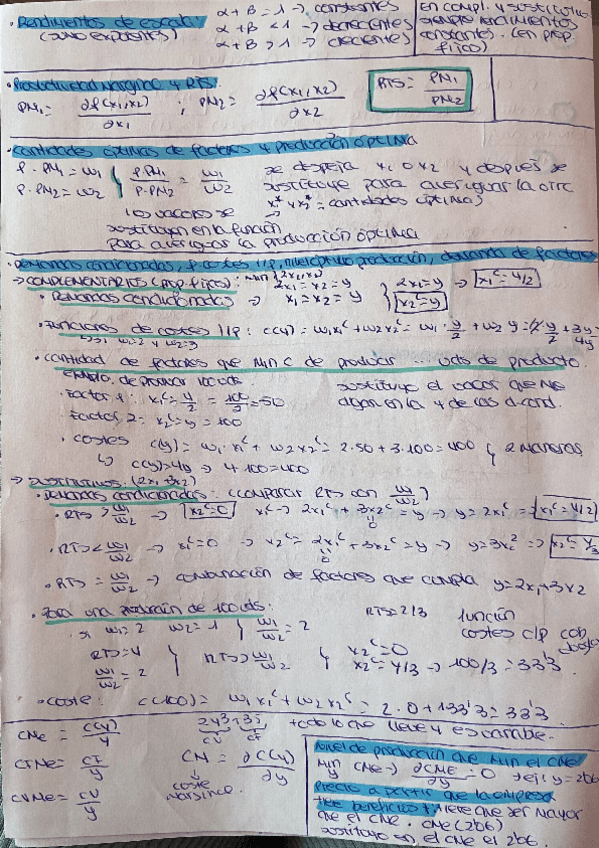 · Rendimientos de escala
(sumo exponentes)
α + B = 1 → constantes
α + B < 1 → decrecientes
α + B > 1 → crecientes
en compl. y sustitutivos
siempre rendimientos
constantes. (en prop
fijos)
· Productividad marginal y RTS.
PM₁ = ∂f(x₁,x₂)/∂x₁ ; PM₂ = ∂f(x₁,x₂)/∂x₂
RTS = PM₁/PM₂
· Cantidades óptimas de factores y producción óptima
P · PM₁ = w₁
P · PM₂ = w₂
P·PM₁/P·PM₂ = w₁/w₂
se despeja x₁ o x₂ y después se
sustituye para averiguar la otra
x₁* y x₂* = cantidades óptimas
los valores se
sustituyen en la función
para averiguar la producción óptima
· Demandas condicionadas, f. costes l/p, nivel producción, demanda de factores
→ COMPLEMENTARIOS (prop. fijos): min{2x₁,x₂}
· Demandas condicionadas → 2x₁ = x₂ = y
2x₁ = y → x₁ᶜ = y/2
x₂ᶜ = y
· Funciones de costes l/p : c(y) = w₁x₁ᶜ + w₂x₂ᶜ = w₁ · y/2 + w₂ y = 2·y/2 + 3y = 4y
w₁=2 y w₂=3
· Cantidad de factores que Min C de producir uds de producto.
ejemplo. de producir 100 uds.
sustituyo el valor que me
digan en la y de las d. cond.
· Factor 1: x₁ᶜ = y/2 = 100/2 = 50
· Factor 2 = x₂ᶜ = y = 100
· costes c(y) = w₁·x₁ᶜ + w₂x₂ᶜ = 2·50 + 3·100 = 400 2 maneras
↳ c(y) = 4y → 4·100 = 400
→ SUSTITUTIVOS: (2x₁ + 3x₂)
· Demandas condicionadas: (comparar RTS con w₁/w₂)
· RTS > w₁/w₂ → x₂ᶜ = 0 x₁ᶜ → 2x₁ᶜ + 3x₂ᶜ = y → y = 2x₁ᶜ → x₁ᶜ = y/2
· RTS < w₁/w₂ → x₁ᶜ = 0 → x₂ᶜ = 2x₁ᶜ + 3x₂ᶜ = y → y = 3x₂ᶜ → x₂ᶜ = y/3
· RTS = w₁/w₂ → combinación de factores que cumpla y = 2x₁ + 3x₂
· Para una producción de 100 uds.
RTS = 2/3
función
costes c/p con
· si w₁ = 2 w₂ = 1 w₁/w₂ = 2
w₁/w₂ = 2
x₂ᶜ = y/3 → 100/3 = 33'3
· coste: c(100) = w₁x₁ᶜ + w₂x₂ᶜ = 2·0 + 1·33'3 = 33'3
CMe = c(y)/y
CTMe = CT/y
CVMe = CV/y
CV CF
todo lo que lleve y es variable.
CM = ∂C(y)/∂y
coste
marginal
Nivel de producción que Min el CMe
Min y CMe → ∂CMe/∂y = 0 → ej: y = 2b6
Precio a partir que la empresa
tiene beneficios tiene que ser mayor
que el CMe. CMe(2b6)
sustituyo en el CMe el 2b6.